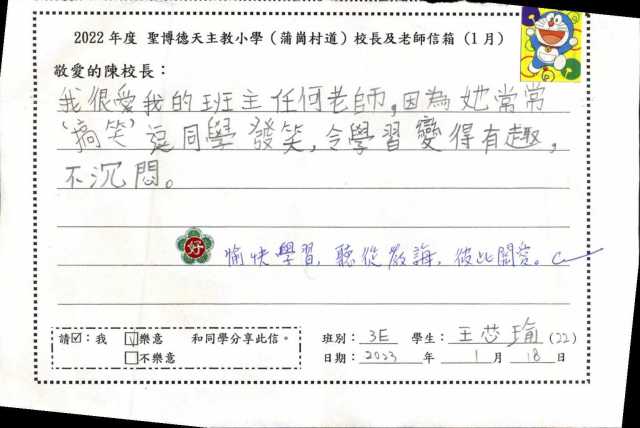 2022 年度 聖博德天主教小學（蒲崗村道）校長及老師信箱（1月）
敬愛的陳校長：
我很愛我的班主任何老師，因為她常常
‘搞笑’逗同學發笑，令學習變得有趣，
不沉悶。
好
愉快學習，聽從教誨，彼此關愛。
請☑：我 ☑樂意 和同學分享此信。
□不樂意
班別： 3E 學生： 王芯瑜 (22)
日期： 2023 年 1 月 18 日